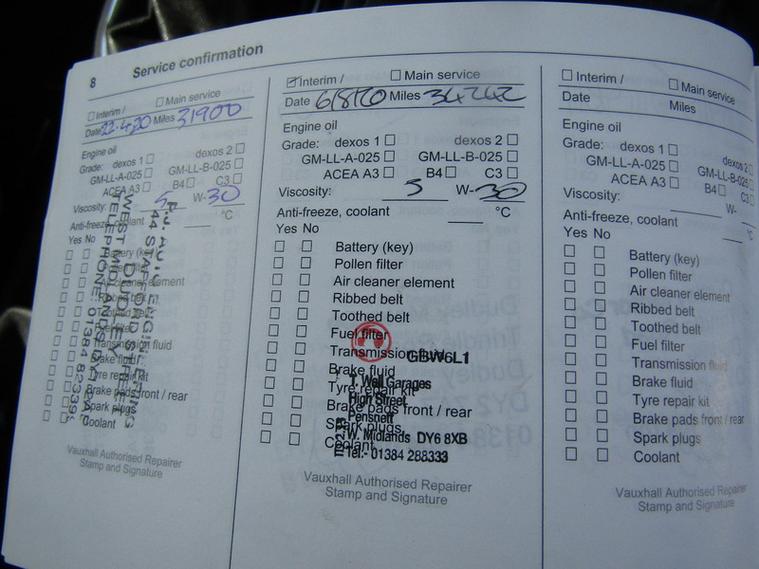 8 Service confirmation
Interim / Main service
Date 22-4-20 Miles 31900
Engine oil
Grade: dexos 1 dexos 2
GM-LL-A-025 GM-LL-B-025
ACEA A3 B4 C3
Viscosity: 5 W-30
Anti-freeze, coolant °C
Yes No
Battery (key)
Air cleaner element
Transmission fluid
Brake fluid
Tyre repair kit
Brake pads front / rear
Spark plugs
Coolant
WEST MIDLANDS
Vauxhall Authorised Repairer
Stamp and Signature
Interim / Main service
Date 6/8/20 Miles 34242
Engine oil
Grade: dexos 1 dexos 2
GM-LL-A-025 GM-LL-B-025
ACEA A3 B4 C3
Viscosity: 5 W-30
Anti-freeze, coolant °C
Yes No
Battery (key)
Pollen filter
Air cleaner element
Ribbed belt
Toothed belt
Fuel filter
Transmission fluid
Brake fluid
Tyre repair kit
Brake pads front / rear
Spark plugs
Coolant
GBW6L1
T. Wall Garages
High Street
Pensnett
W. Midlands DY6 8XB
Tel:- 01384 288333
Vauxhall Authorised Repairer
Stamp and Signature
Interim / Main service
Date Miles
Engine oil
Grade: dexos 1 dexos 2
GM-LL-A-025 GM-LL-B-025
ACEA A3 B4 C3
Viscosity: W-
Anti-freeze, coolant °C
Yes No
Battery (key)
Pollen filter
Air cleaner element
Ribbed belt
Toothed belt
Fuel filter
Transmission fluid
Brake fluid
Tyre repair kit
Brake pads front / rear
Spark plugs
Coolant
Vauxhall Authorised Repairer
Stamp and Signature